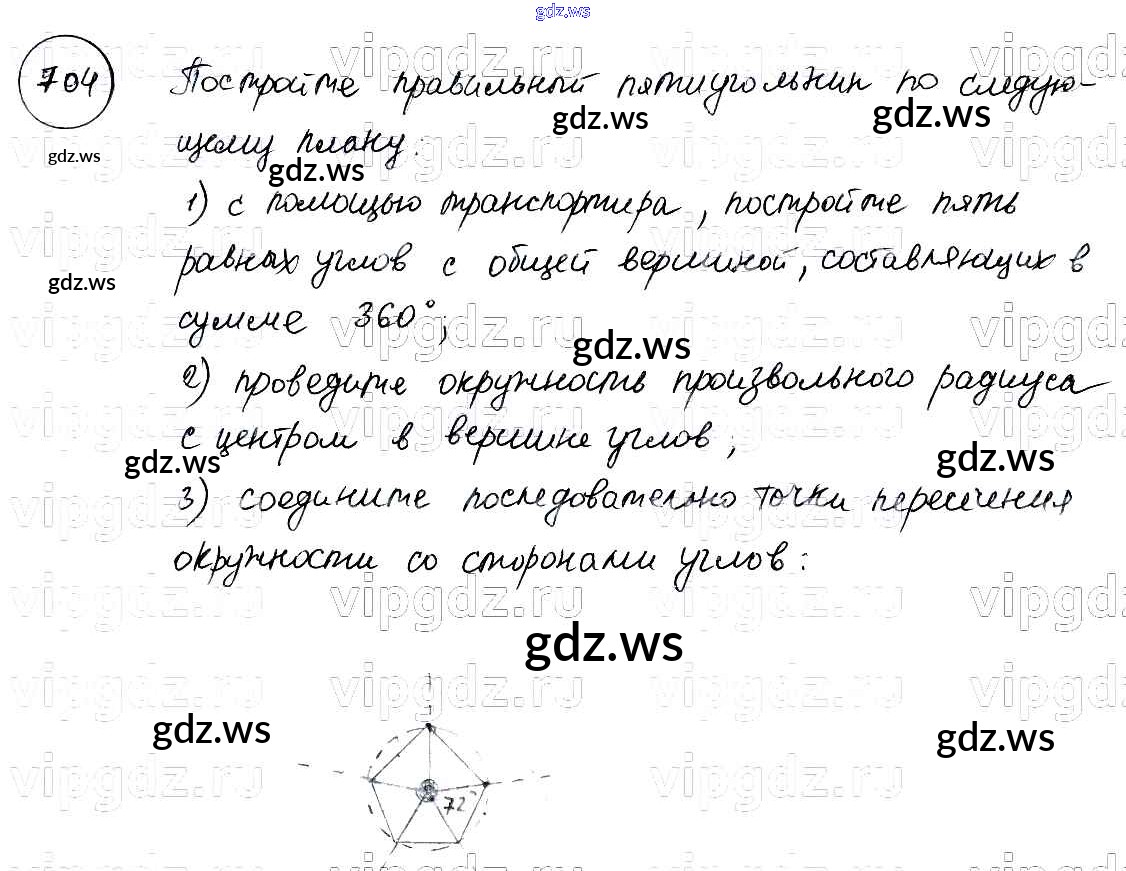 gdz.ws
704 Постройте правильный пятиугольник по следую-
щему плану:
1) с помощью транспортира, постройте пять
равных углов с общей вершиной, составляющих в
сумме 360°;
2) проведите окружность произвольного радиуса
с центром в вершине углов;
3) соедините последовательно точки пересечения
окружности со сторонами углов:
72°
vipgdz.ru
gdz.ws